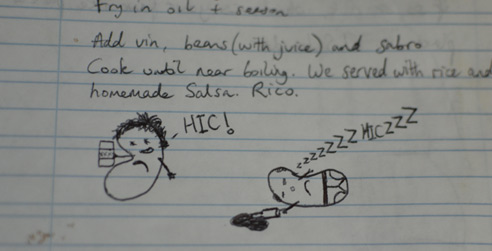 Fry in oil + season
Add vin, beans (with juice) and sabro
Cook until near boiling. We served with rice and
homemade Salsa. Rico.
HIC!
zzzzzzZZZ HIC ZZZ